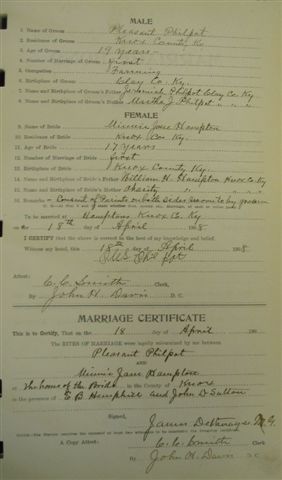 MALE
1. Name of Groom Pleasant Philpot
2. Residence of Groom Knox County Ky
3. Age of Groom 19 years
4. Number of Marriage of Groom First
5. Occupation Farming
6. Birthplace of Groom Clay Co. Ky.
7. Name and Birthplace of Groom's Father Jeremiah Philpot Clay Co Ky
8. Name and Birthplace of Groom's Mother Martha J Philpot " " "
FEMALE
9. Name of Bride Minnie Jane Hampton
10. Residence of Bride Knox Co. Ky
11. Age of Bride 17 years
12. Number of Marriage of Bride first
13. Birthplace of Bride Knox County Ky.
14. Name and Birthplace of Bride's Father William H. Hampton Knox Co Ky
15. Name and Birthplace of Bride's Mother Charity " " "
16. Remarks Consent of Parents on both sides by groom
To be married at Hamptons Knox Co. Ky
on the 18th day of April 1908
I CERTIFY that the above is correct to the best of my knowledge and belief.
Witness my hand, this 18th day of April 1908
Philpot
Attest:
C. C. Smith Clerk.
By John H. Davis D. C.
MARRIAGE CERTIFICATE
This is to Certify, That on the 18 day of April 190
The RITES OF MARRIAGE were legally solemnized by me between
Pleasant Philpot
AND
Minnie Jane Hampton
at the home of the Bride in the County of Knox
in the presence of E B Hemphill and John D Sutton
Signed,
James M. G.
A Copy Attest: C. C. Smith Clerk
By John H. Davis D. C.